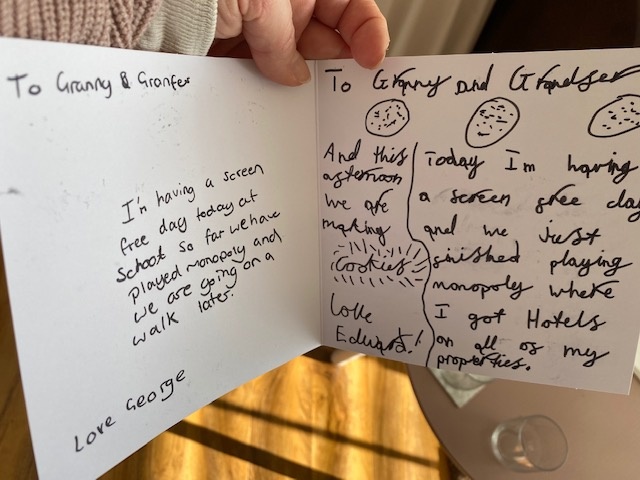 To Granny & Granfer
I'm having a screen
free day today at
school so far we have
played monopoly and
we are going on a
walk later.
Love George
To Granny and Grandfer
Today I'm having
a screen free day
and we just
finished playing
monopoly where
I got Hotels
on all of my
properties.
And this
afternoon
we are
making
Cookies
Love
Edward!